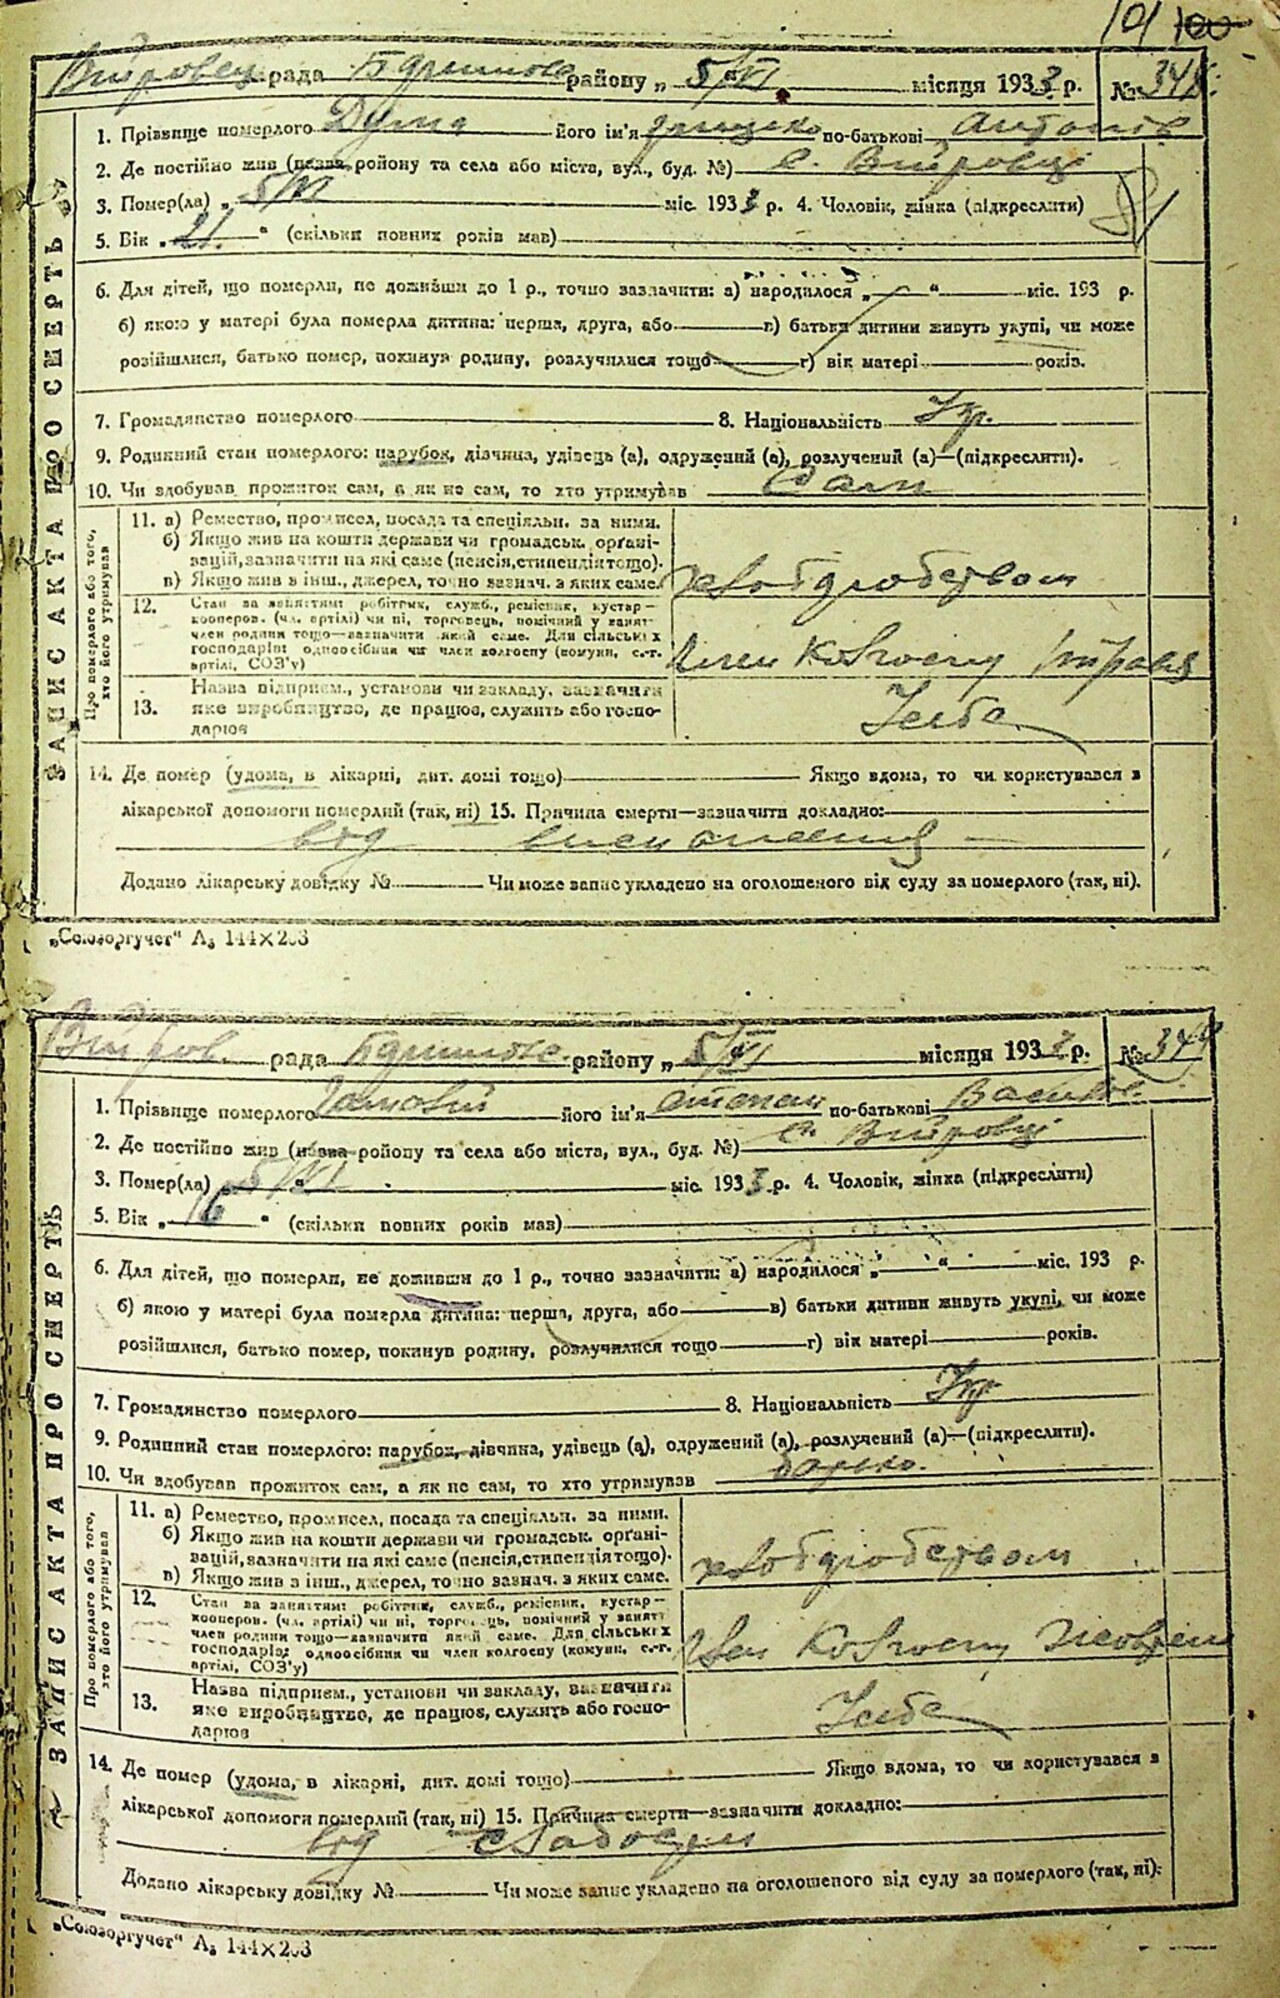 101 100
рада району „ 5/VI місяця 1933 р. № 348
ЗАПИС АКТА ПРО СМЕРТЬ
1. Прізвище померлого Дума його ім'я по-батькові Антонів
2. Де постійно жив (назва району та села або міста, вул., буд. №) с.
3. Помер(ла) „ 5/VI міс. 1933 р. 4. Чоловік, жінка (підкреслити)
5. Вік „ 21. “ (скільки повних років мав)
6. Для дітей, що померли, не доживши до 1 р., точно зазначити: а) народилося „ “ міс. 193 р.
б) якою у матері була померла дитина: перша, друга, або в) батьки дитини живуть укупі, чи може
розійшлися, батько помер, покинув родину, розлучилися тощо г) вік матері років.
7. Громадянство померлого 8. Національність Укр.
9. Родинний стан померлого: парубок, дівчина, удівець (а), одружений (а), розлучений (а)—(підкреслити).
10. Чи здобував прожиток сам, а як не сам, то хто утримував Сам
Про померлого або того, хто його утримував
11. а) Ремество, промисел, посада та спеціяльн. за ними.
б) Якщо жив на кошти держави чи громадськ. органі-
зацій, зазначити на які саме (пенсія, стипендія тощо).
в) Якщо жив з інш., джерел, точно зазнач. з яких саме.
хлібдробством
12. Стан за заняттям: робітник, служб., ремісник, кустар—
кооперов. (чл. артілі) чи ні, торговець, помічний у занят.
член родини тощо—зазначити який саме. Для сільських
господарів: одноосібник чи член колгоспу (комуни, с.-г.
артілі, СОЗ'у)
Член колгоспу
13. Назва підприєм., установи чи закладу, зазначити
яке виробництво, де працює, служить або госпо-
дарює
14. Де помер (удома, в лікарні, дит. домі тощо) Якщо вдома, то чи користувався з
лікарської допомоги померлий (так, ні) 15. Причина смерти—зазначити докладно:
від
Додано лікарську довідку № Чи може запис укладено на оголошеного від суду за померлого (так, ні).
„Союзоргучет“ А₅ 144×203
рада району „ 5/VI місяця 1933 р. № 349
ЗАПИС АКТА ПРО СМЕРТЬ
1. Прізвище померлого його ім'я Степан по-батькові Васильов.
2. Де постійно жив (назва району та села або міста, вул., буд. №) с.
3. Помер(ла) „ 5/VI міс. 1933 р. 4. Чоловік, жінка (підкреслити)
5. Вік „ 16 “ (скільки повних років мав)
6. Для дітей, що померли, не доживши до 1 р., точно зазначити: а) народилося „ “ міс. 193 р.
б) якою у матері була померла дитина: перша, друга, або в) батьки дитини живуть укупі, чи може
розійшлися, батько помер, покинув родину, розлучилися тощо г) вік матері років.
7. Громадянство померлого 8. Національність Укр.
9. Родинний стан померлого: парубок, дівчина, удівець (а), одружений (а), розлучений (а)—(підкреслити).
10. Чи здобував прожиток сам, а як не сам, то хто утримував
Про померлого або того, хто його утримував
11. а) Ремество, промисел, посада та спеціяльн. за ними.
б) Якщо жив на кошти держави чи громадськ. органі-
зацій, зазначити на які саме (пенсія, стипендія тощо).
в) Якщо жив з інш., джерел, точно зазнач. з яких саме.
хлібдробством
12. Стан за заняттям: робітник, служб., ремісник, кустар—
кооперов. (чл. артілі) чи ні, торговець, помічний у занят.
член родини тощо—зазначити який саме. Для сільських
господарів: одноосібник чи член колгоспу (комуни, с.-г.
артілі, СОЗ'у)
Член колгоспу
13. Назва підприєм., установи чи закладу, зазначити
яке виробництво, де працює, служить або госпо-
дарює
14. Де помер (удома, в лікарні, дит. домі тощо) Якщо вдома, то чи користувався з
лікарської допомоги померлий (так, ні) 15. Причина смерти—зазначити докладно:
від слабости
Додано лікарську довідку № Чи може запис укладено на оголошеного від суду за померлого (так, ні).
„Союзоргучет“ А₅ 144×203